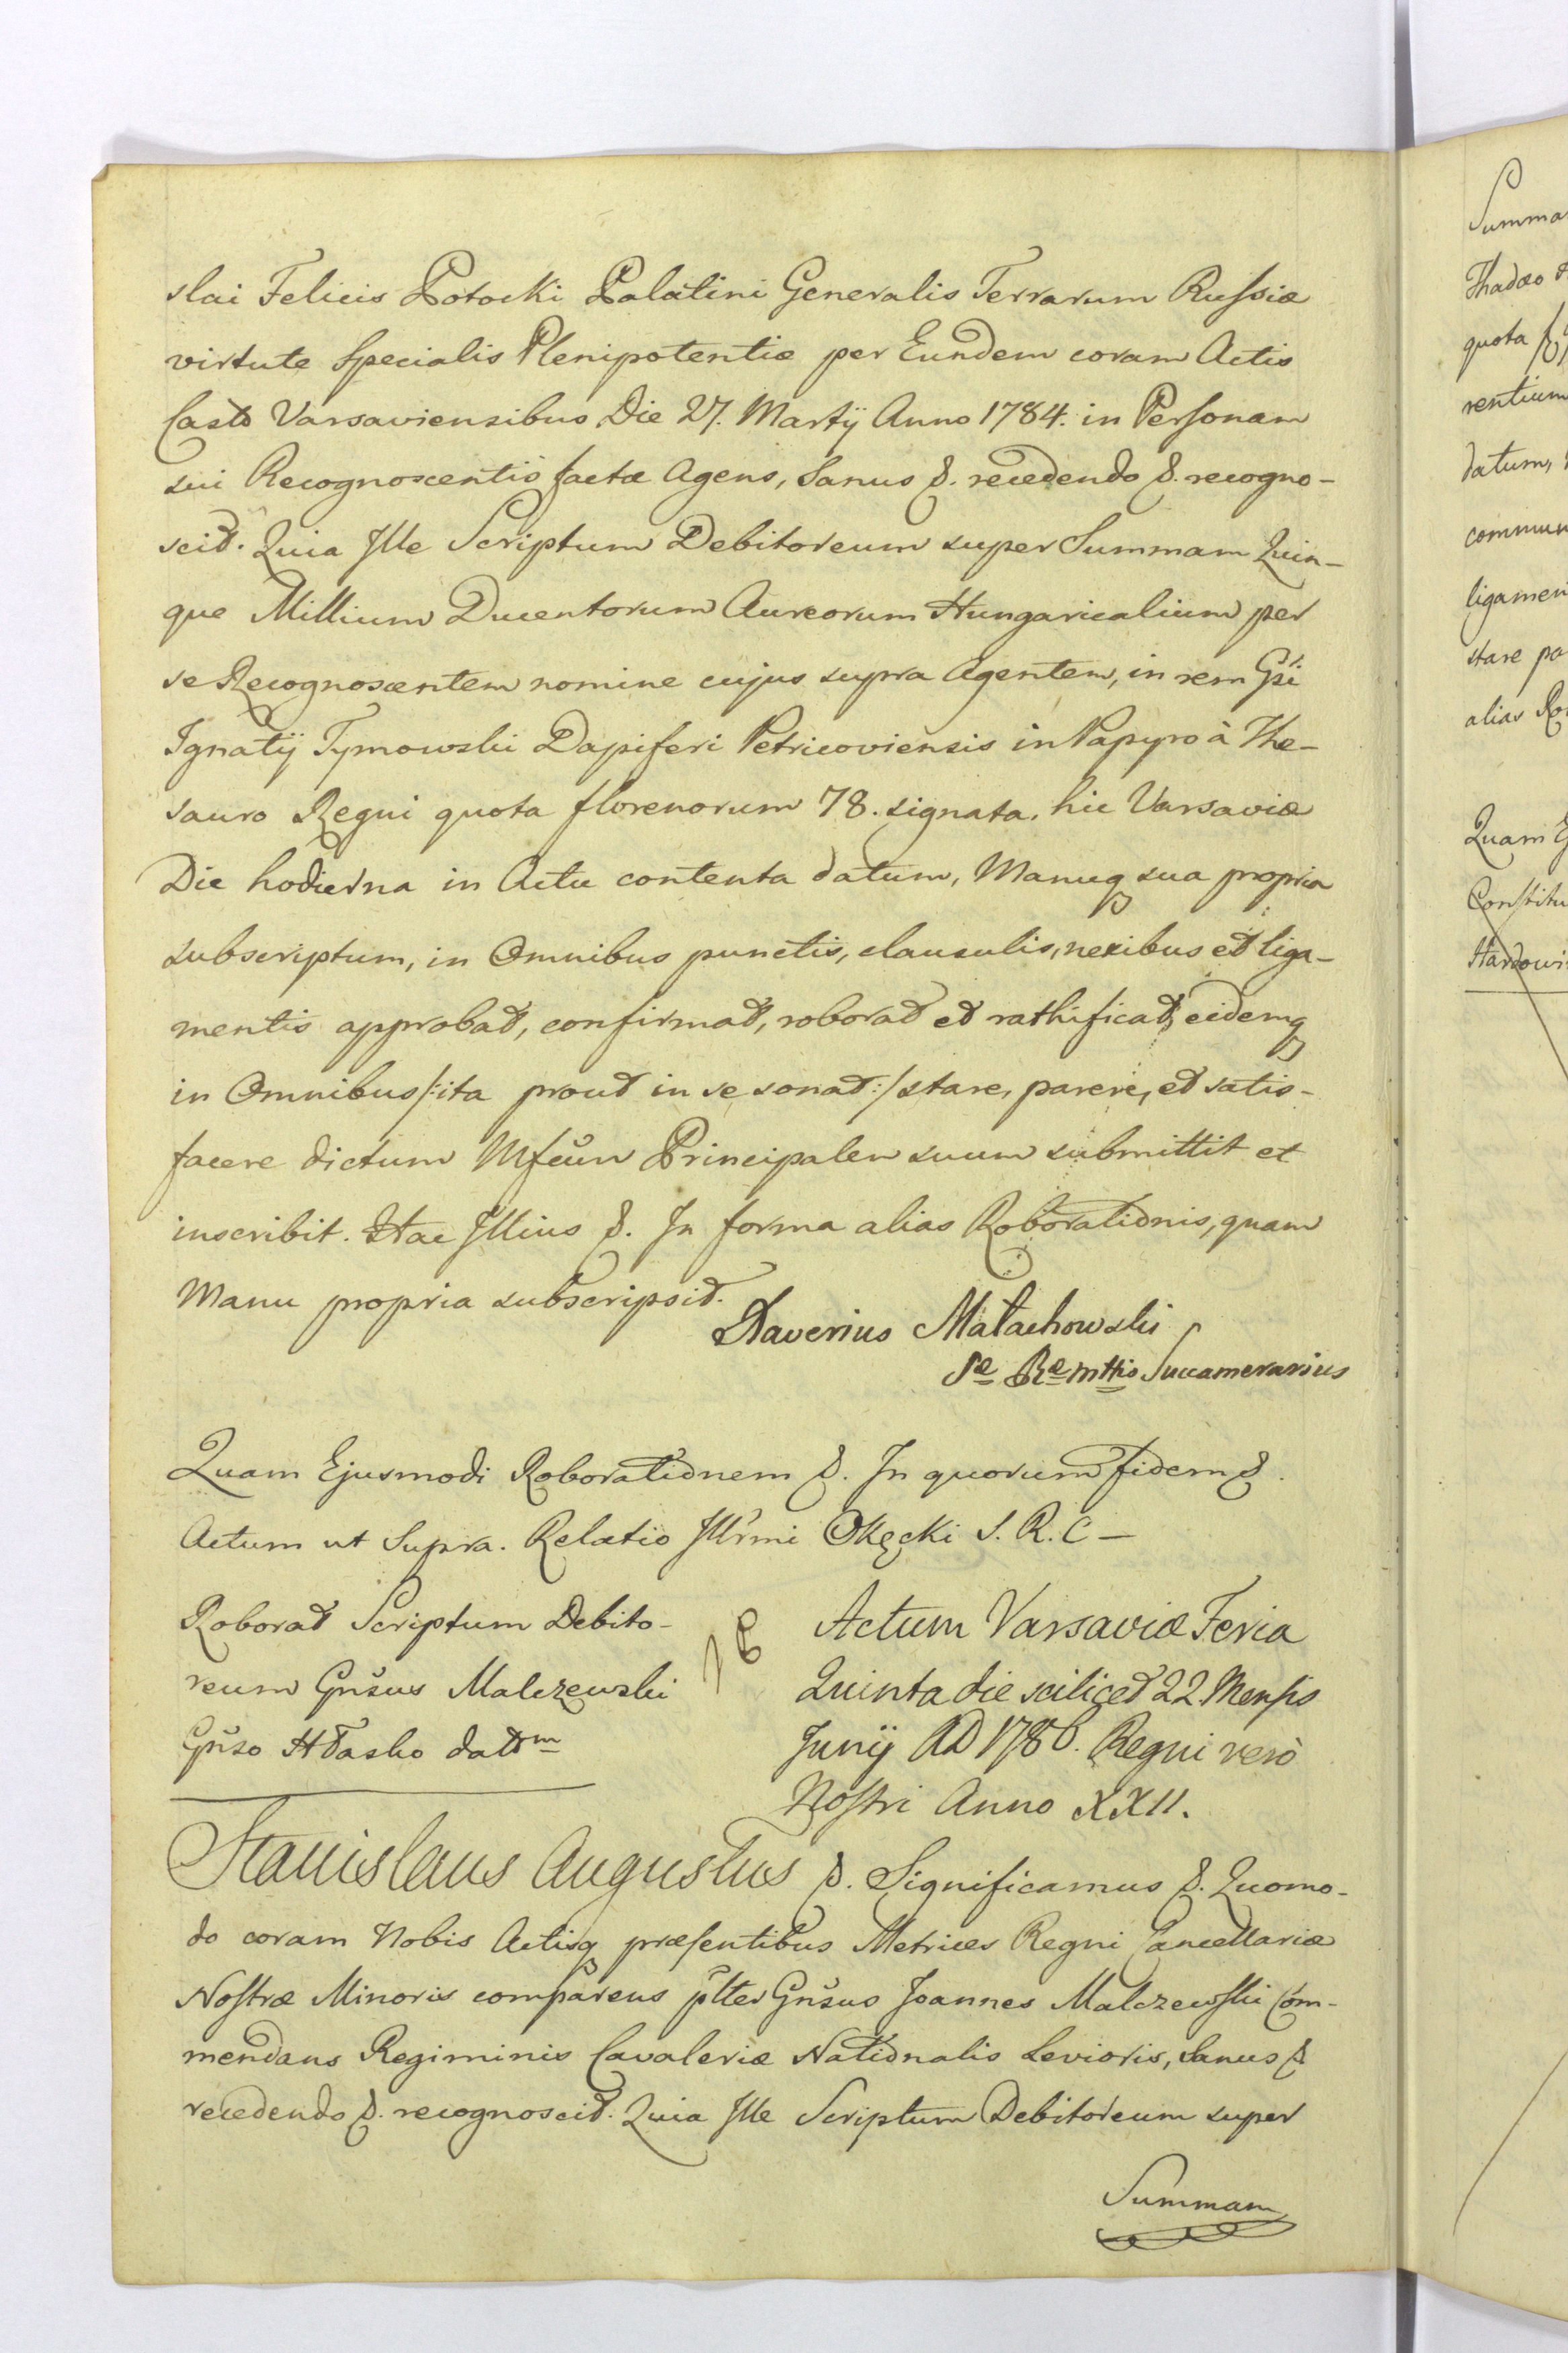 slai Felicis Potocki Palatini Generalis Terrarum Russiæ
virtute Specialis Plenipotentiæ per Eundem coram Actis
Castr Varsaviensibus Die 27. Martij Anno 1784. in Personam
sui Recognoscentis factæ Agens, Sanus &. recedendo &. recogno-
scit. Quia Ille Scriptum Debitoreum super Summam Quin-
que Millium Ducentorum Aureorum Hungaricalium per
se Recognoscentem nomine cujus supra Agentem, in rem Gsi
Ignatij Tymowski Dapiferi Petricoviensis in Papyro à The-
sauro Regni quota florenorum 78. signata, hic Varsaviæ
Die hodierna in Actu contenta datum, Manuq sua propria
subscriptum, in Omnibus punctis, clausulis, nexibus et liga-
mentis approbat, confirmat, roborat et rathificat, eidemq
in Omnibus /:ita prout in se sonat:/ stare, parere, et satis-
facere dictum Mfcum Principalem suum submittit et
inscribit. Hac Illius &. In forma alias Roborationis, quam
Manu propria subscripsit.
Xaverius Małachowski
Sæ Ræ Mttis Succamerarius
Quam Ejusmodi Roborationem &. In quorum fidem &.
Actum ut Supra. Relatio Illrmi Okęcki S. R. C –
Roborat Scriptum Debito-
reum Gnsus Malczewski
Gnso Hłasko datm
Actum Varsaviæ Feria
Quinta die scilicet 22 Mensis
Junij AD 1786. Regni verò
Nostri Anno XXII.
Stanislaus Augustus &. Significamus &. Quomo-
do coram Nobis Actisq præsentibus Metrices Regni Cancellariæ
Nostræ Minoris comparens plter Gnsus Joannes Malczewski Com-
mendans Regiminis Cavaleriæ Nationalis Levioris, Sanus &
recedendo &. recognoscit. Quia Ille Scriptum Debitoreum super
Summam
Summa
Thadæo
quota
rentium
datum,
commun
ligamen
stare pa
alias Ro
Quam E
Constitu
Hardowi